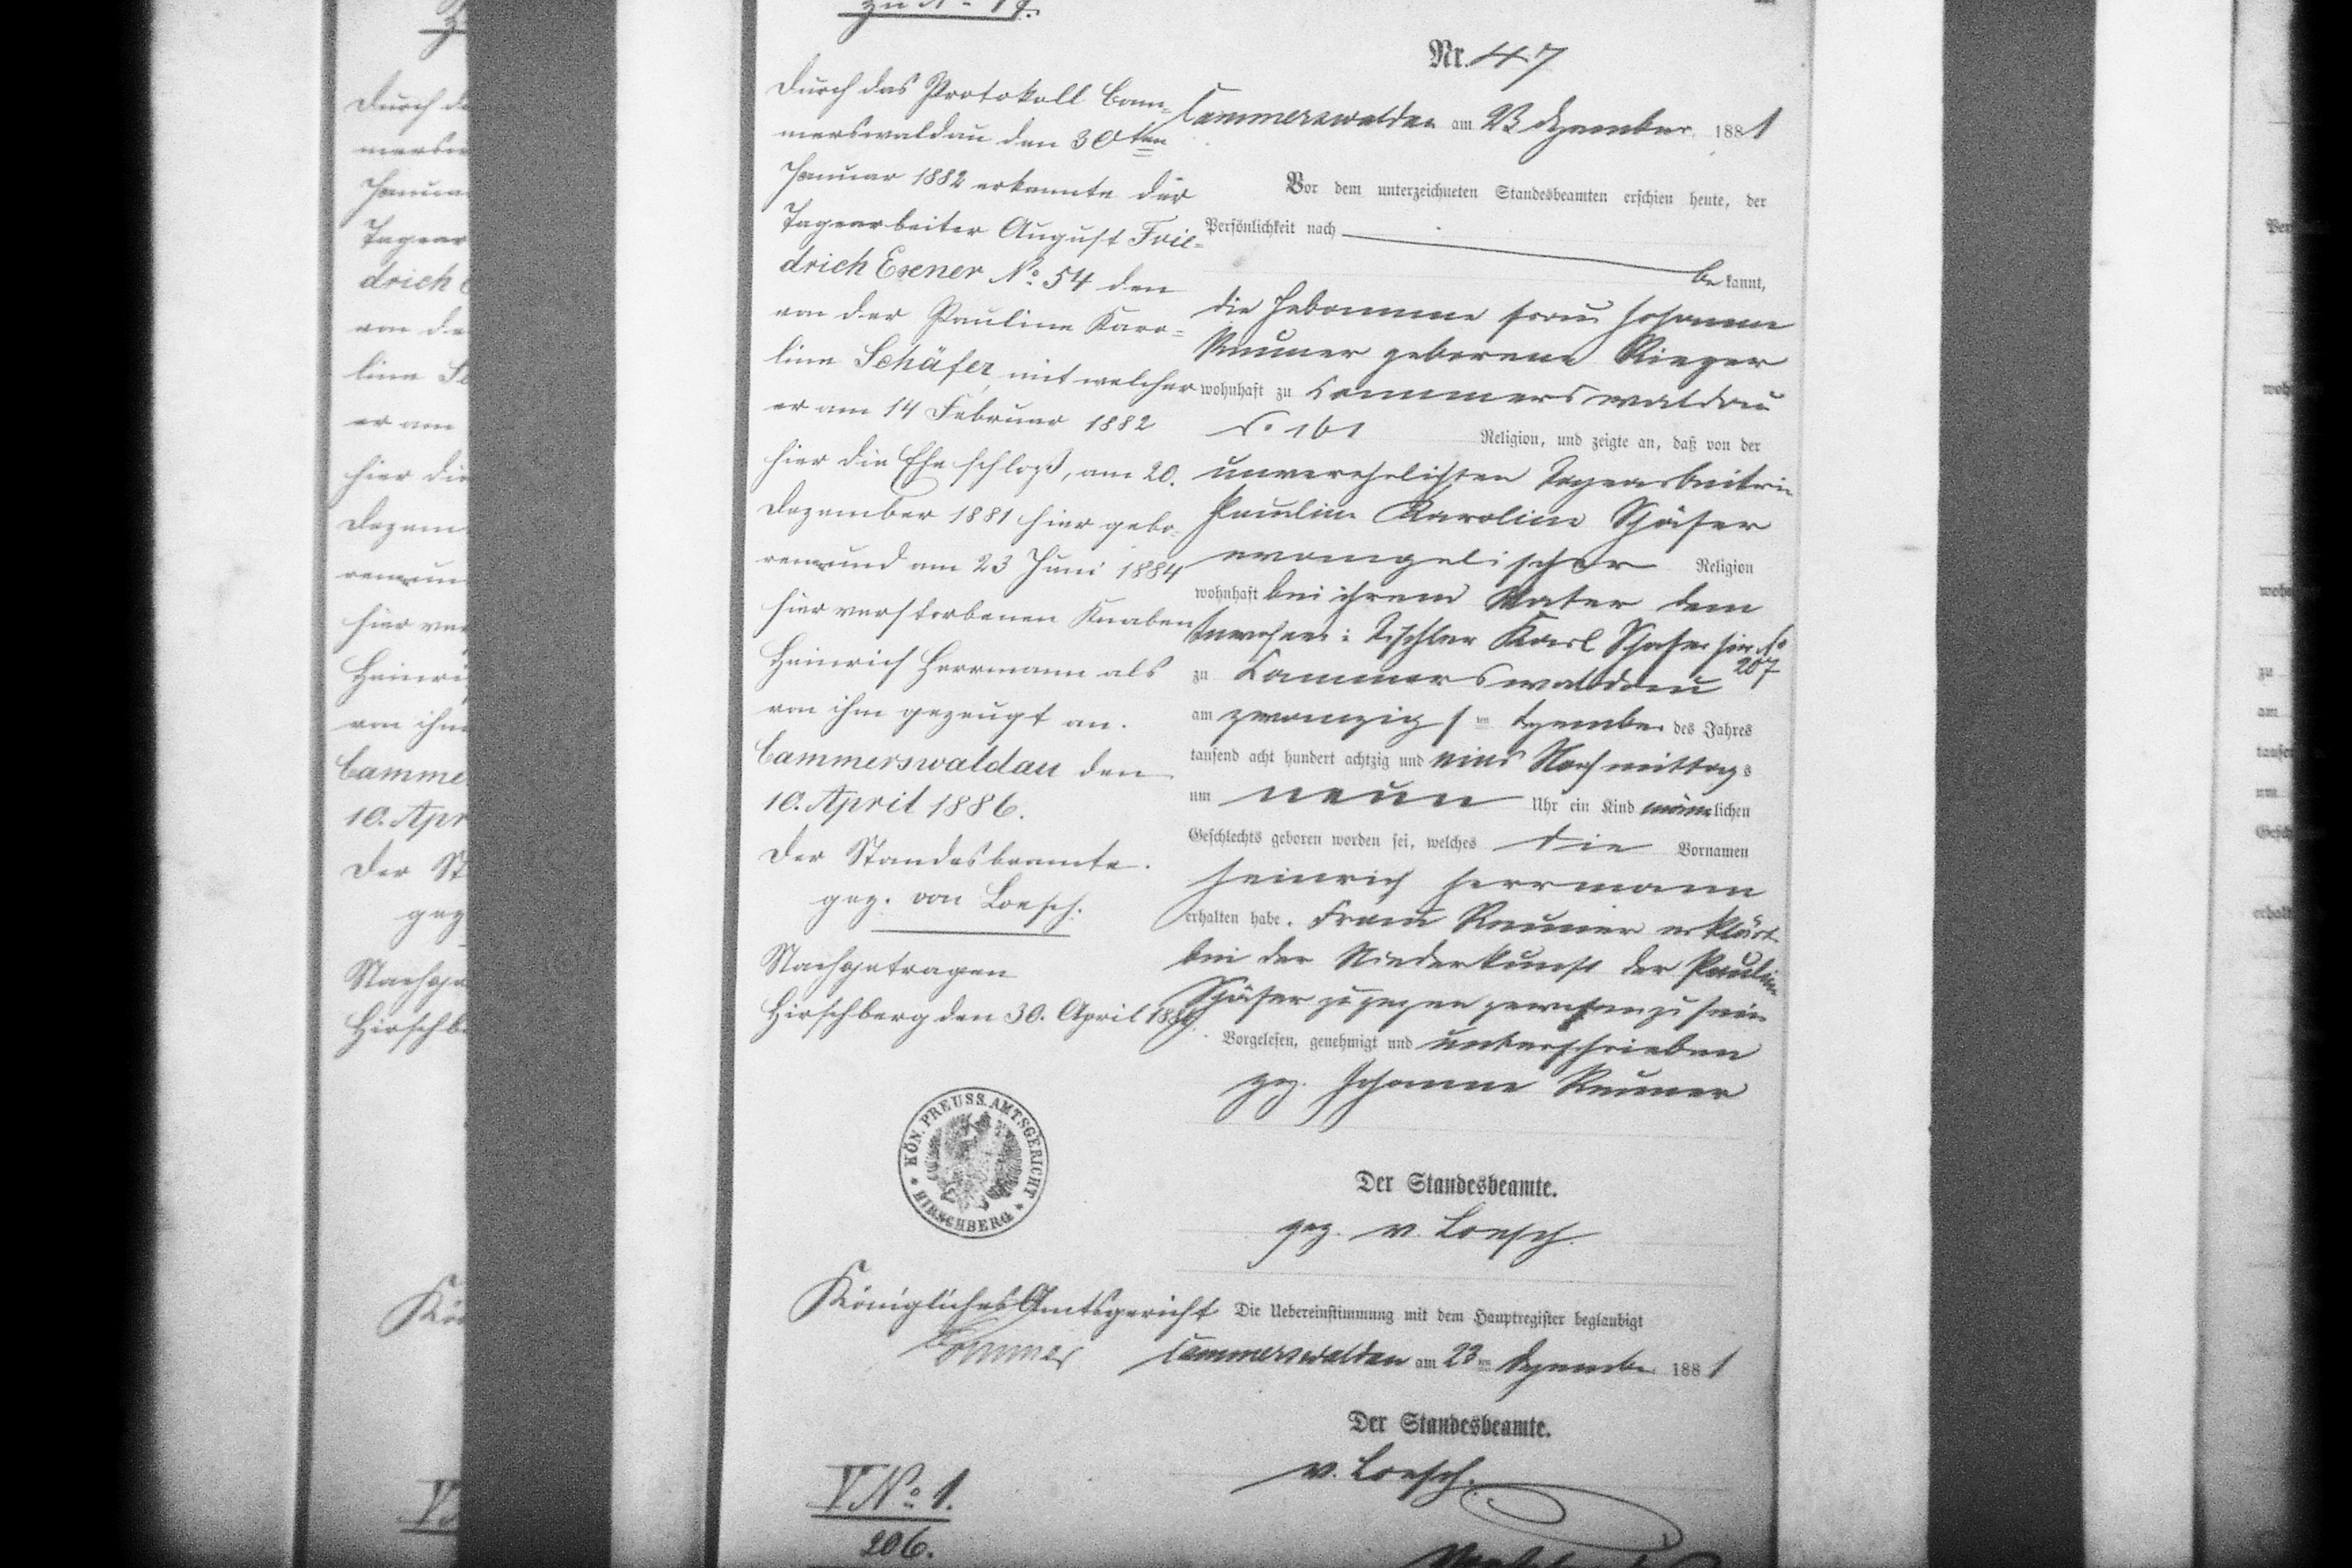 zu No 47.
Durch das Protokoll Cam-
merswaldau den 30ten
Januar 1882 erkannte der
Tagearbeiter August Frie-
drich Exener No. 54 den
von der Pauline Karo-
line Schäfer, mit welcher
er am 14 Februar 1882
hier die Ehe schloß, am 20.
Dezember 1881 hier gebo-
renen und am 23 Juni 1884
hier verstorbenen Knaben
Heinrich Herrmann als
von ihm gezeugt an.
Cammerswaldau den
10. April 1886.
Der Standesbeamte.
gez. von Loesch.
Nachgetragen
Hirschberg den 30. April 1886.
KÖN. PREUSS. AMTSGERICHT
* HIRSCHBERG *
Königliches Amtsgericht
V No. 1.
206.
Nr. 47
Cammerswaldau am 23 Dezember 1881
Vor dem unterzeichneten Standesbeamten erschien heute, der
Persönlichkeit nach
bekannt,
die Hebamme Frau Johanne
geborene Rieger
wohnhaft zu Cammerswaldau
No 161 Religion, und zeigte an, daß von der
unverehelichten Tagearbeiterin
Pauline Karoline Schäfer
evangelischer Religion
wohnhaft bei ihrem Vater dem
Inwohner: Tischler Karl Schäfer hier No
207
zu Cammerswaldau
am zwanzigsten Dezember des Jahres
tausend acht hundert achtzig und eins Nachmittags
um neun Uhr ein Kind männlichen
Geschlechts geboren worden sei, welches die Vornamen
Heinrich Herrmann
erhalten habe. Frau erklärt
bei der Niederkunft der Pauline
Schäfer zugegen gewesen zu sein
Vorgelesen, genehmigt und unterschrieben
gez. Johanne
Der Standesbeamte.
gez. v. Loesch.
Die Uebereinstimmung mit dem Hauptregister beglaubigt
Cammerswaldau am 23ten Dezember 1881
Der Standesbeamte.
v. Loesch.